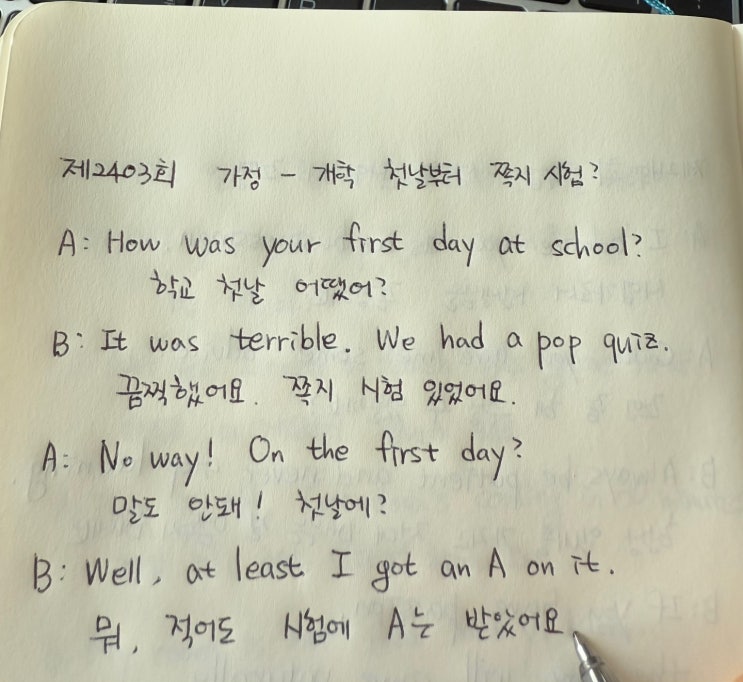 제2403회 가정 - 개학 첫날부터 쪽지 시험?
A: How was your first day at school?
학교 첫날 어땠어?
B: It was terrible. We had a pop quiz.
끔찍했어요. 쪽지 시험 있었어요.
A: No way! On the first day?
말도 안돼! 첫날에?
B: Well, at least I got an A on it.
뭐, 적어도 시험에 A는 받았어요.